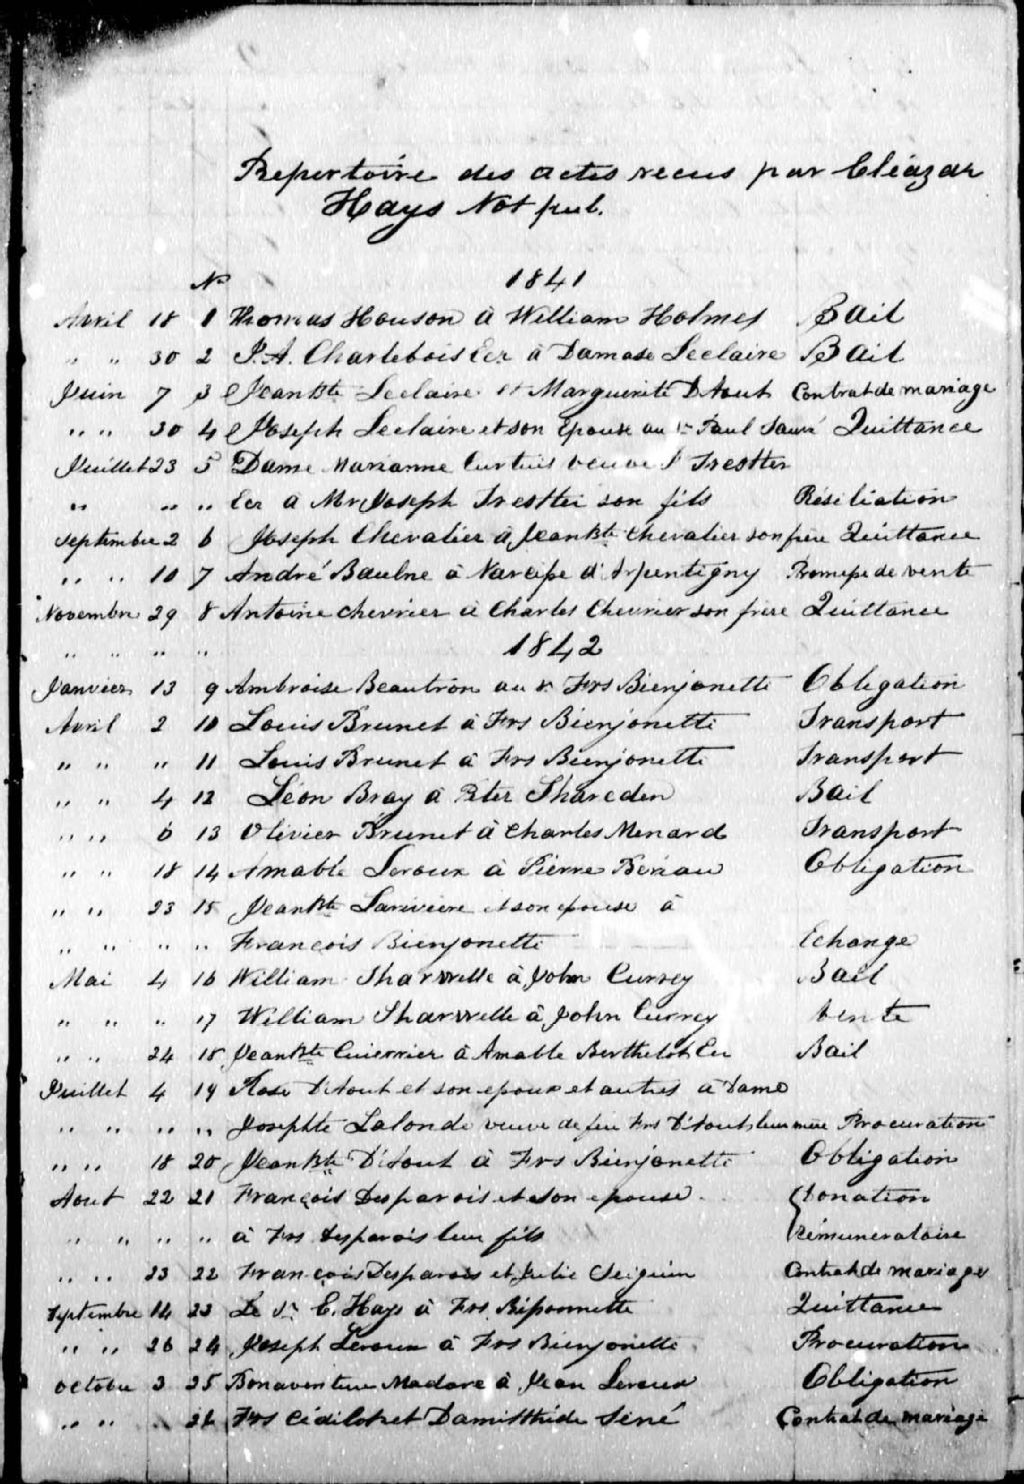 Repertoire des actes recus par Eléazar
Hays Not pub.
No 1841
Avril 18 1 Thomas Houson à William Holmes Bail
" " 30 2 P. A. Chartebois Ecr à Damase Leclaire Bail
Juin 7 3 Jean Bte Leclaire et Marguerite D'Aout Contrat de mariage
" " 30 4 Joseph Leclaire et son épouse au Sr Paul Sauvé Quittance
Juillet 23 5 Dame Marianne Curtius veuve J Trestler
" " " Ecr à Mr Joseph Trestler son fils Résiliation
Septembre 2 6 Joseph Chevalier à Jean Bte Chevalier son frère Quittance
" " 10 7 André Baulne à Narcisse d'Arpentigny Promesse de vente
Novembre 29 8 Antoine Chevrier à Charles Chevrier son frère Quittance
" " " " 1842
Janvier 13 9 Ambroise Beautron au Sr Frs Bienjonette Obligation
Avril 2 10 Louis Brunet à Frs Bienjonette Transport
" " " 11 Louis Brunet à Frs Bienjonette Transport
" " 4 12 Léon Bray à Peter Shareden Bail
" " 6 13 Olivier Brunet à Charles Menard Transport
" " 18 14 Amable Leroux à Pierre Bériau Obligation
" " 23 15 Jean Bte Lariviere et son epouse à
" " " " François Bienjonette Echange
Mai 4 16 William Sharwelle à John Currey Bail
" " " 17 William Sharwelle à John Currey Vente
" " 24 18 Jean Bte Cuierrier à Amable Berthelot Ecr Bail
Juillet 4 19 Rose D'Aout et son epoux et autres à Dame
" " " " Josephte Lalonde veuve de feu Frs D'Aout leur mère Procuration
" " 18 20 Jean Bte D'Aout à Frs Bienjonette Obligation
Aout 22 21 François Desparois et son epouse Donation
" " " " à Frs Desparois leur fils rémuneratoire
" " 23 22 François Desparois et Julie Seiguin Contrat de mariage
Septembre 14 23 Le Sr E. Hays à Frs Bissonnette Quittance
" " 26 24 Joseph Leroux à Frs Bienjonette Procuration
Octobre 3 25 Bonaventure Madore à Jean Leroux Obligation
" " " 26 Frs Cédilot et Damisthide Séné Contrat de mariage